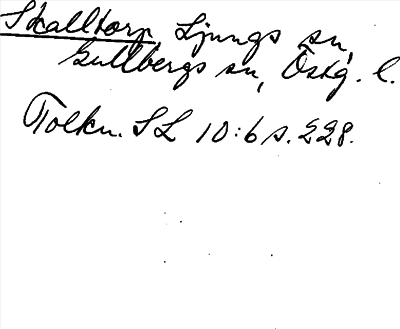 Skalltorp Ljungs sn,
Gullbergs sn, Östg. l.
Tolkn. SL 10:6 s. 228.